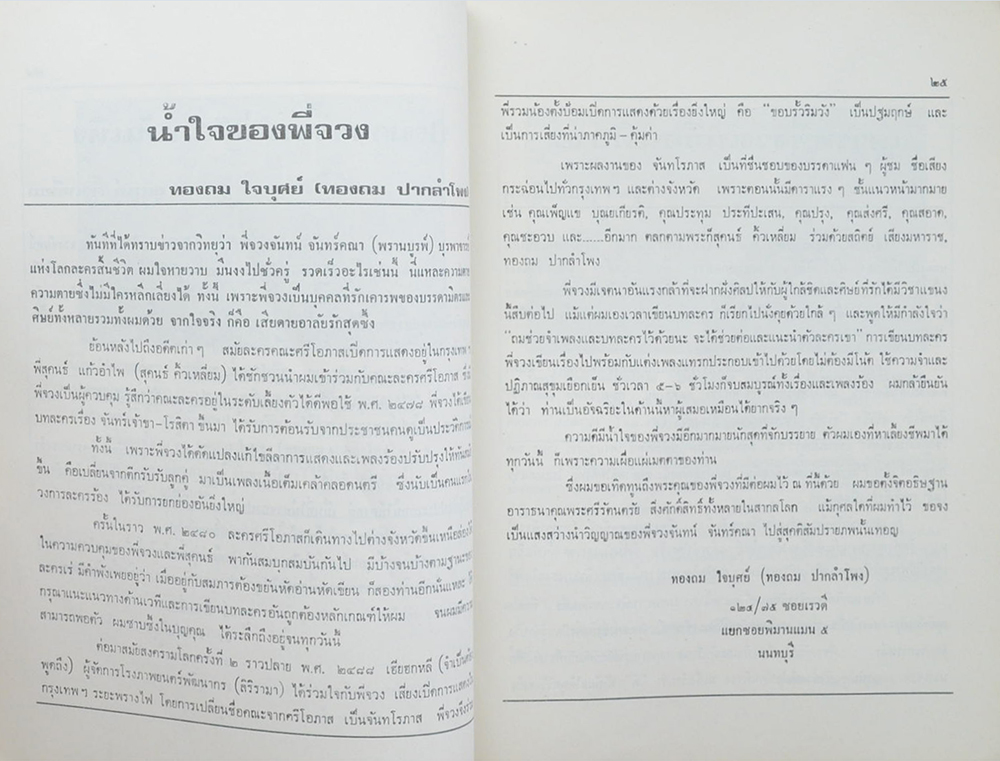 น้ำใจของพี่จวง
ทองถม ใจบุศย์ (ทองถม ปากลำโพง
ทันทีที่ได้ทราบข่าวจากวิทยุว่า พี่จวงจันทน์ จันทร์คณา (พรานบูรพ์) บูรพาจารย์
แห่งโลกละครสิ้นชีวิต ผมใจหายวาบ มึนงงไปชั่วครู่ รวดเร็วอะไรเช่นนี้ นี่แหละความตาย
ความตายซึ่งไม่มีใครหลีกเลี่ยงได้ ทั้งนี้ เพราะพี่จวงเป็นบุคคลที่รักเคารพของบรรดามิตรและ
ศิษย์ทั้งหลายรวมทั้งผมด้วย จากใจจริง ก็คือ เสียดายอาลัยรักสุดซึ้ง
ย้อนหลังไปถึงอดีตเก่าๆ สมัยละครคณะศรีโอภาสเปิดการแสดงอยู่ในกรุงเทพฯ
พี่สุคนธ์ แก้วอำไพ (สุคนธ์ คิ้วเหลี่ยม) ได้ชักชวนนำผมเข้าร่วมกับคณะละครศรีโอภาส ซึ่งมี
พี่จวงเป็นผู้ควบคุม รู้สึกว่าคณะละครอยู่ในระดับเลี้ยงตัวได้ดีพอใช้ พ.ศ. ๒๔๗๘ พี่จวงได้เขียน
บทละครเรื่อง จันทร์เจ้าขา-โรสิตา ขึ้นมา ได้รับการต้อนรับจากประชาชนคนดูเป็นประวัติการณ์
ทั้งนี้ เพราะพี่จวงได้ดัดแปลงแก้ไขลีลาการแสดงและเพลงร้องปรับปรุงให้ทันสมัย
ขึ้น คือเปลี่ยนจากตีกรับรับลูกคู่ มาเป็นเพลงเนื้อเต็มเคล้าคลอดนตรี ซึ่งนับเป็นคนแรกใน
วงการละครร้อง ได้รับการยกย่องอันยิ่งใหญ่
ครั้นในราว พ.ศ. ๒๔๘๐ ละครศรีโอภาสก็เดินทางไปต่างจังหวัดขึ้นเหนือล่องใต้
ในความควบคุมของพี่จวงและพี่สุคนธ์ พากันสมบุกสมบันกันไป มีบ้างจนบ้างตามฐานะของ
ละครเร่ มีคำพังเพยอยู่ว่า เมื่ออยู่กับสมภารต้องขยันหัดอ่านหัดเขียน ก็สองท่านอีกนั่นแหละ
กรุณาแนะแนวทางด้านเวทีและการเขียนบทละครอันถูกต้องหลักเกณฑ์ให้ผม จนผมมีความ
สามารถพอตัว ผมซาบซึ้งในบุญคุณ ได้ระลึกถึงอยู่จนทุกวันนี้
ต่อมาสมัยสงครามโลกครั้งที่ ๒ ราวปลาย พ.ศ. ๒๔๘๘ เฮียอกหลี (จำเป็นต้อง
พูดถึง) ผู้จัดการโรงภาพยนตร์พัฒนากร (สิริรามา) ได้ร่วมใจกับพี่จวง เสี่ยงเปิดการแสดงใน
กรุงเทพฯ ระยะพรางไฟ โดยการเปลี่ยนชื่อคณะจากศรีโอภาส เป็นจันทโรภาส พี่จวงจึงร่วม
๒๕
พี่รวมน้องตั้งป้อมเปิดการแสดงด้วยเรื่องยิ่งใหญ่ คือ "ขอบรั้วริมวัง" เป็นปฐมฤกษ์ และ
เป็นการเสี่ยงที่น่าภาคภูมิ – คุ้มค่า
เพราะผลงานของ จันทโรภาส เป็นที่ชื่นชอบของบรรดาแฟน ๆ ผู้ชม ชื่อเสียง
กระฉ่อนไปทั่วกรุงเทพ ฯ และต่างจังหวัด เพราะตอนนั้นมีดาราแรง ๆ ชั้นแนวหน้ามากมาย
เช่น คุณเพ็ญแข บุณยเกียรติ, คุณประทุม ประทีปะเสน, คุณปรุง, คุณส่งศรี, คุณสอาด,
คุณชะอวบ และ......อีกมาก ตลกตามพระก็สุคนธ์ คิ้วเหลี่ยม ร่วมด้วยสถิตย์ เสียงมหาราช,
ทองถม ปากลำโพง
พี่จวงมีเจตนาอันแรงกล้าที่จะฝากฝังศิลปให้กับผู้ใกล้ชิดและศิษย์ที่รักได้มีวิชาแขนง
นี้สืบต่อไป แม้แต่ผมเองเวลาเขียนบทละคร ก็เรียกไปนั่งคุยด้วยใกล้ ๆ และพูดให้มีกำลังใจว่า
"ถมช่วยจำเพลงและบทละครไว้ด้วยนะ จะได้ช่วยต่อและแนะนำตัวละครเขา" การเขียนบทละคร
พี่จวงเขียนเรื่องไปพร้อมกับแต่งเพลงแทรกประกอบเข้าไปด้วยโดยไม่ต้องมีโน้ต ใช้ความจำและ
ปฏิภาณสุขุมเยือกเย็น ชั่วเวลา ๕-๖ ชั่วโมงก็จบสมบูรณ์ทั้งเรื่องและเพลงร้อง ผมกล้ายืนยัน
ได้ว่า ท่านเป็นอัจฉริยะในด้านนี้หาผู้เสมอเหมือนได้ยากจริง ๆ
ความดีมีน้ำใจของพี่จวงมีอีกมากมายนักสุดที่จักบรรยาย ตัวผมเองที่หาเลี้ยงชีพมาได้
ทุกวันนี้ ก็เพราะความเผื่อแผ่เมตตาของท่าน
ซึ่งผมขอเทิดทูนถึงพระคุณของพี่จวงที่มีต่อผมไว้ ณ ที่นี้ด้วย ผมขอตั้งจิตอธิษฐาน
อาราธนาคุณพระศรีรัตนตรัย สิ่งศักดิ์สิทธิ์ทั้งหลายในสากลโลก แม้กุศลใดที่ผมทำไว้ ขอจง
เป็นแสงสว่างนำวิญญาณของพี่จวงจันทน์ จันทร์คณา ไปสู่สุคติสัมปรายภพนั้นเทอญ
ทองถม ใจบุศย์ (ทองถม ปากลำโพง)
๑๒๕/๗๕ ซอยเรวดี
แยกซอยพิมานแมน ๕
นนทบุรี